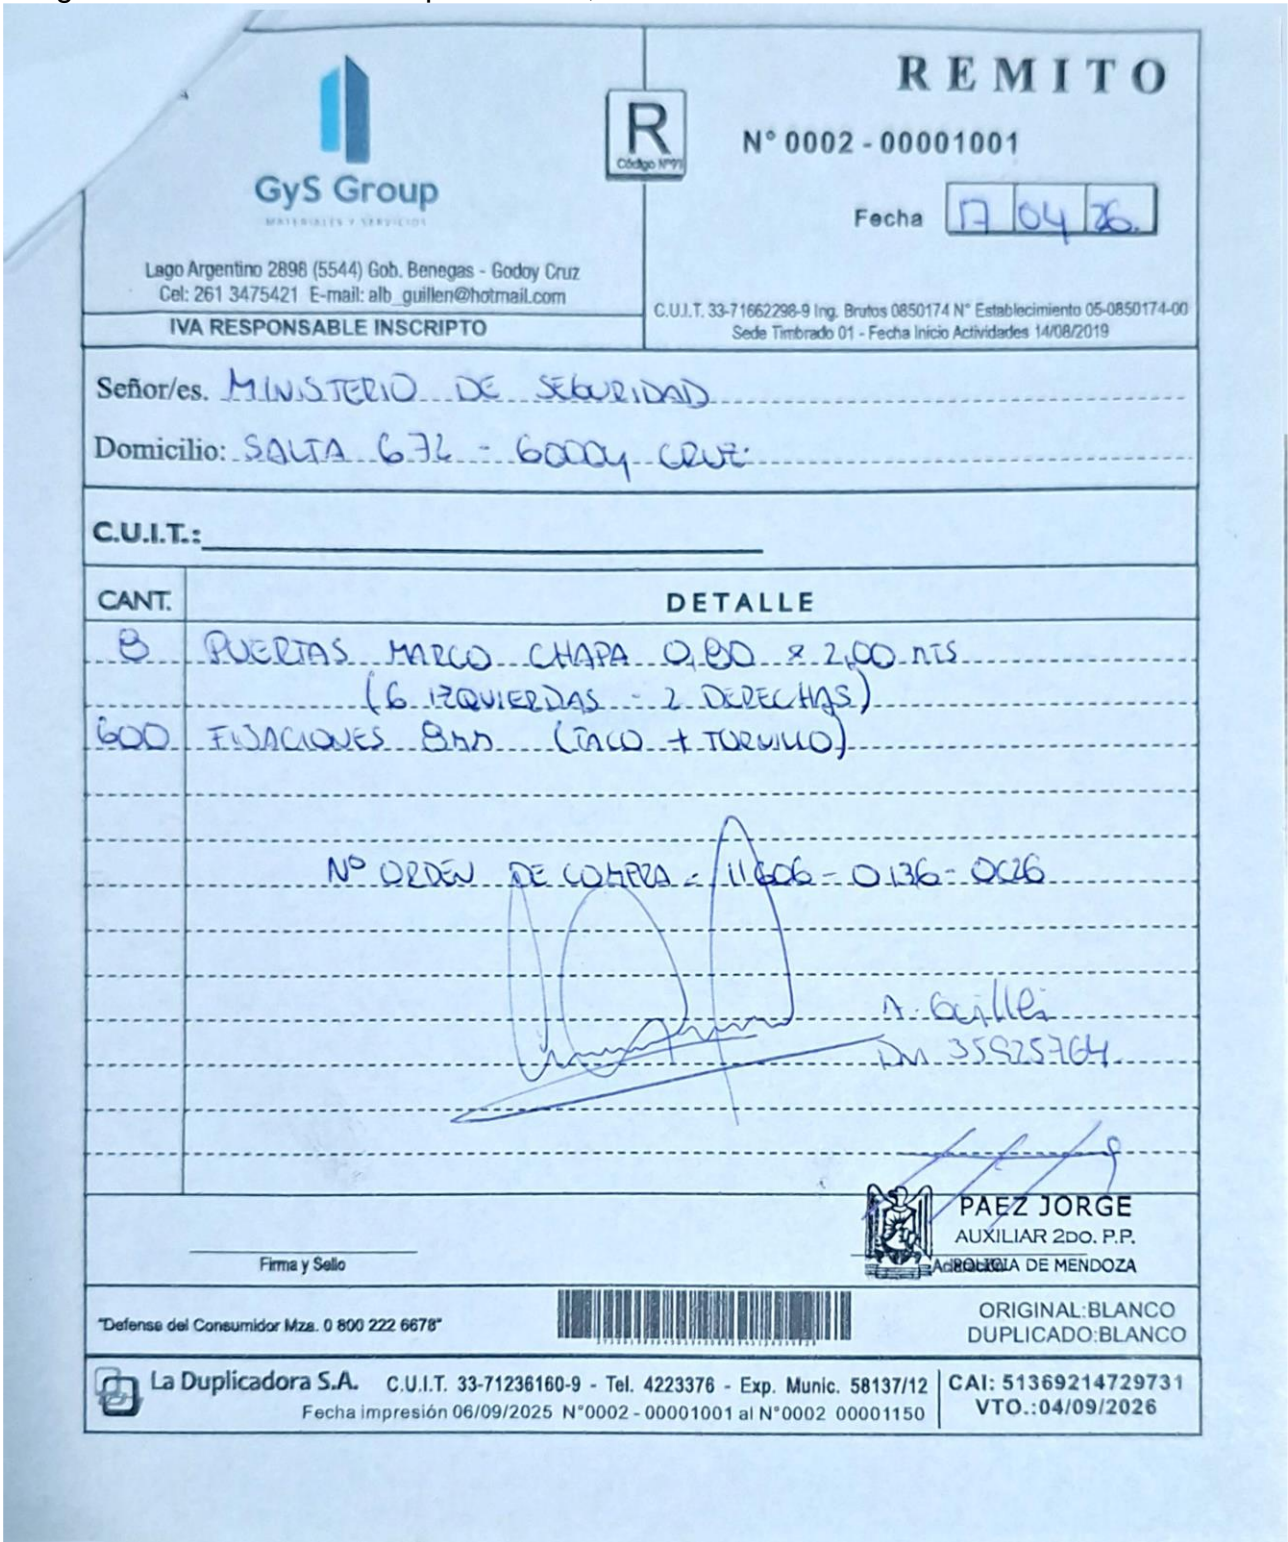 REMITO
R
Código Nº91
Nº 0002 - 00001001
Fecha 17 04 26
GyS Group
MATERIALES Y SERVICIOS
Lago Argentino 2898 (5544) Gob. Benegas - Godoy Cruz
Cel: 261 3475421 E-mail: alb_guillen@hotmail.com
IVA RESPONSABLE INSCRIPTO
C.U.I.T. 33-71662298-9 Ing. Brutos 0850174 N° Establecimiento 05-0850174-00
Sede Timbrado 01 - Fecha Inicio Actividades 14/08/2019
Señor/es. MINISTERIO DE SEGURIDAD
Domicilio: SALTA 672 - GODOY CRUZ.
C.U.I.T.:
CANT. DETALLE
8 PUERTAS MARCO CHAPA 0,80 x 2,00 MTS
(6 IZQUIERDAS - 2 DERECHAS)
600 FIJACIONES 8MM (TACO + TORNILLO)
Nº ORDEN DE COMPRA - 11606 - 0136 - OC26
A. Guillen
DNI 35925764
PAEZ JORGE
AUXILIAR 2DO. P.P.
POLICIA DE MENDOZA
Firma y Sello
"Defensa del Consumidor Mza. 0 800 222 6678"
ORIGINAL:BLANCO
DUPLICADO:BLANCO
La Duplicadora S.A. C.U.I.T. 33-71236160-9 - Tel. 4223376 - Exp. Munic. 58137/12
Fecha impresión 06/09/2025 N°0002 - 00001001 al N°0002 00001150
CAI: 51369214729731
VTO.:04/09/2026